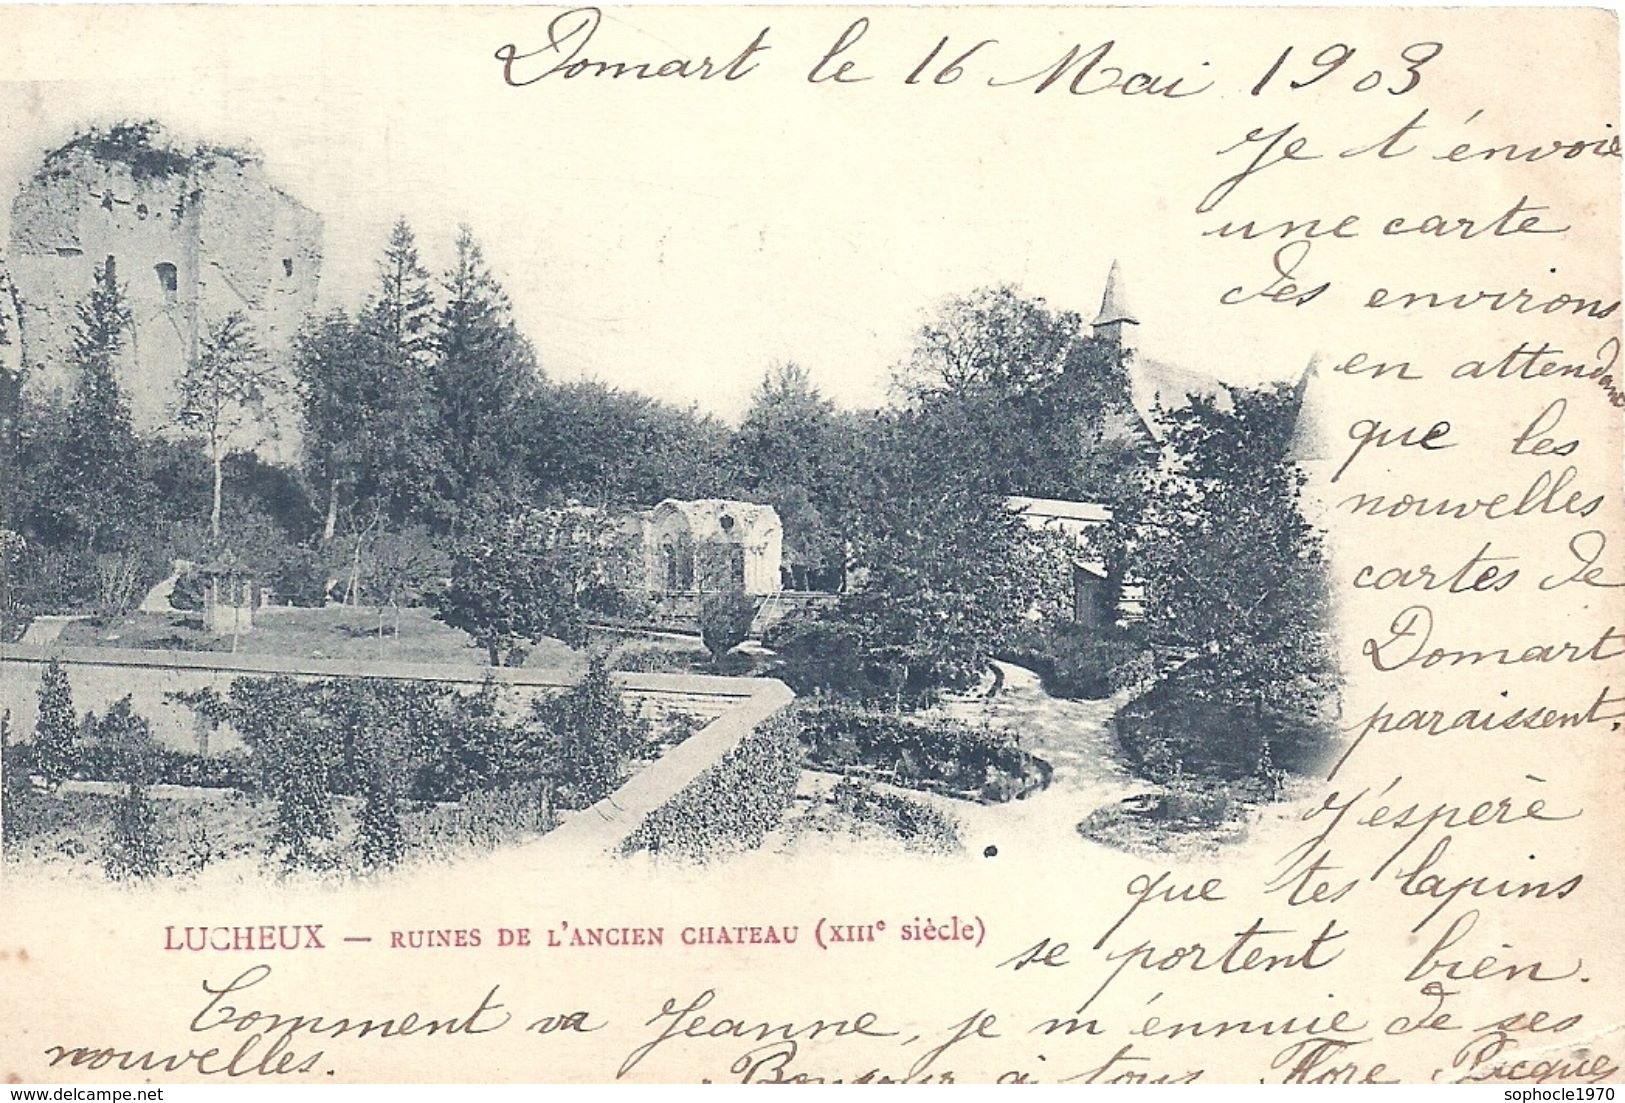 Domart le 16 Mai 1903
Je t'énvoie
une carte
des environs
en attendant
que les
nouvelles
cartes de
Domart
paraissent.
J'espère
que tes lapins
se portent bien.
LUCHEUX — RUINES DE L'ANCIEN CHATEAU (XIIIe siècle)
Comment va Jeanne, je m'énnuie de ses
nouvelles.
Bonjour à tous
delcampe.net
sophocle1970